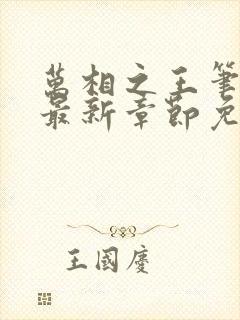 萬相之王筆
最新章節免
王國慶